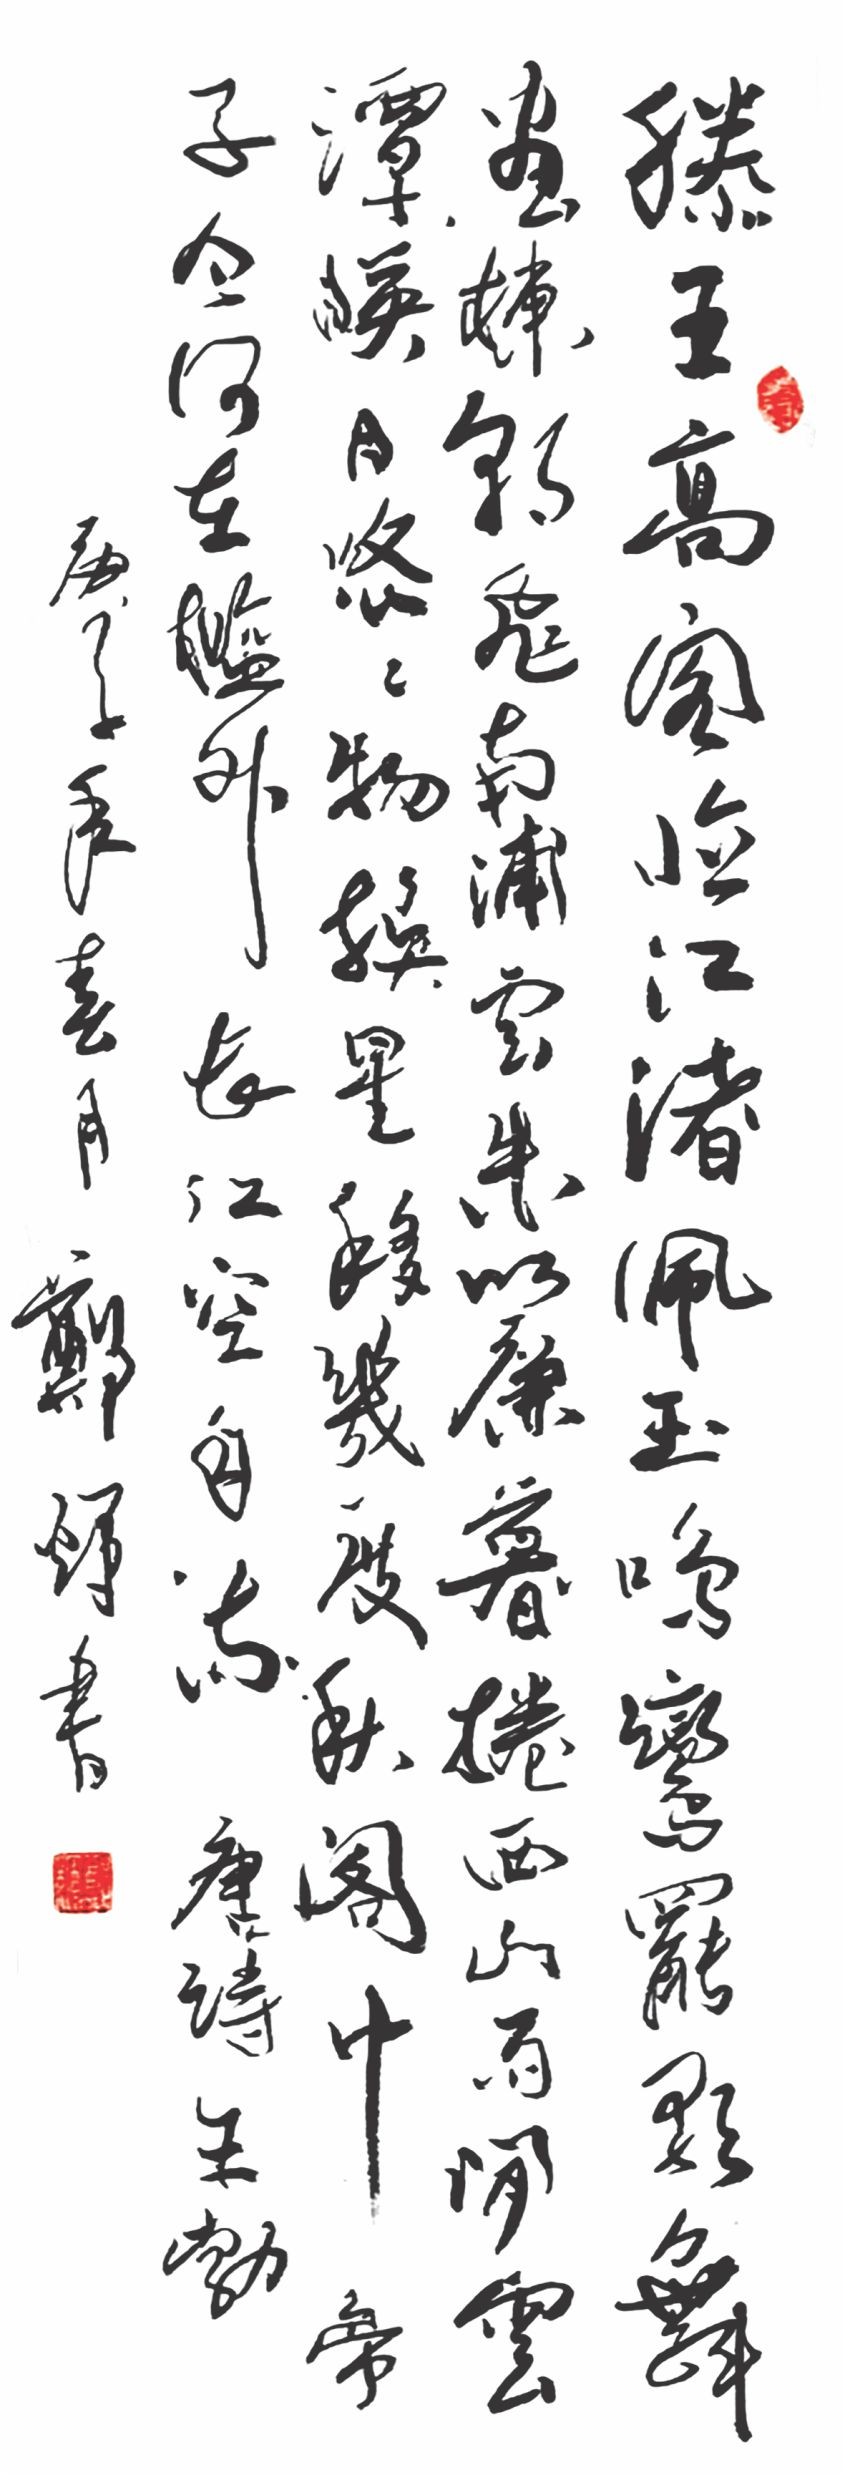 滕王高閣臨江渚佩玉鳴鸞罷歌舞
畫棟朝飛南浦雲朱簾暮捲西山雨閒雲
潭影日悠悠物換星移幾度秋閣中帝
子今何在檻外長江空自流 唐詩王勃
庚子年春月 鄭書